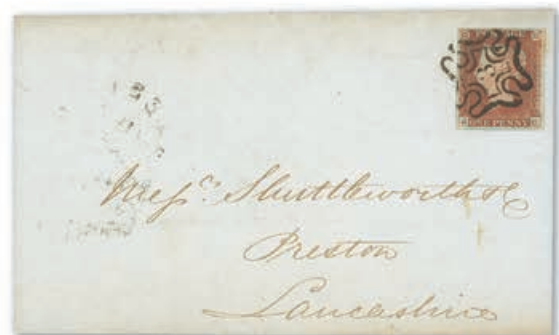 ONE PENNY
Messrs. Shuttleworth &
Preston
Lancashire